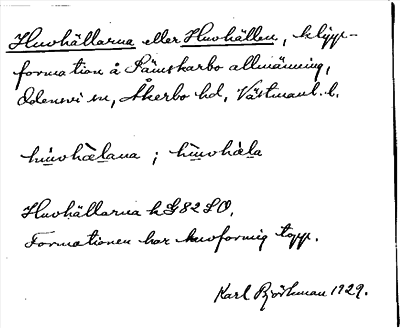 Huvhällarna eller Huvhällen, klipp-
formation å Sämskarbo allmänning,
Odensvi sn, Åkerbo hd, Västmanl. l.
hùvhæ̀lana ; hùvhàla
Huvhällarna k G82 SO.
Formationen har huvformig topp.
Karl Björkman 1929.